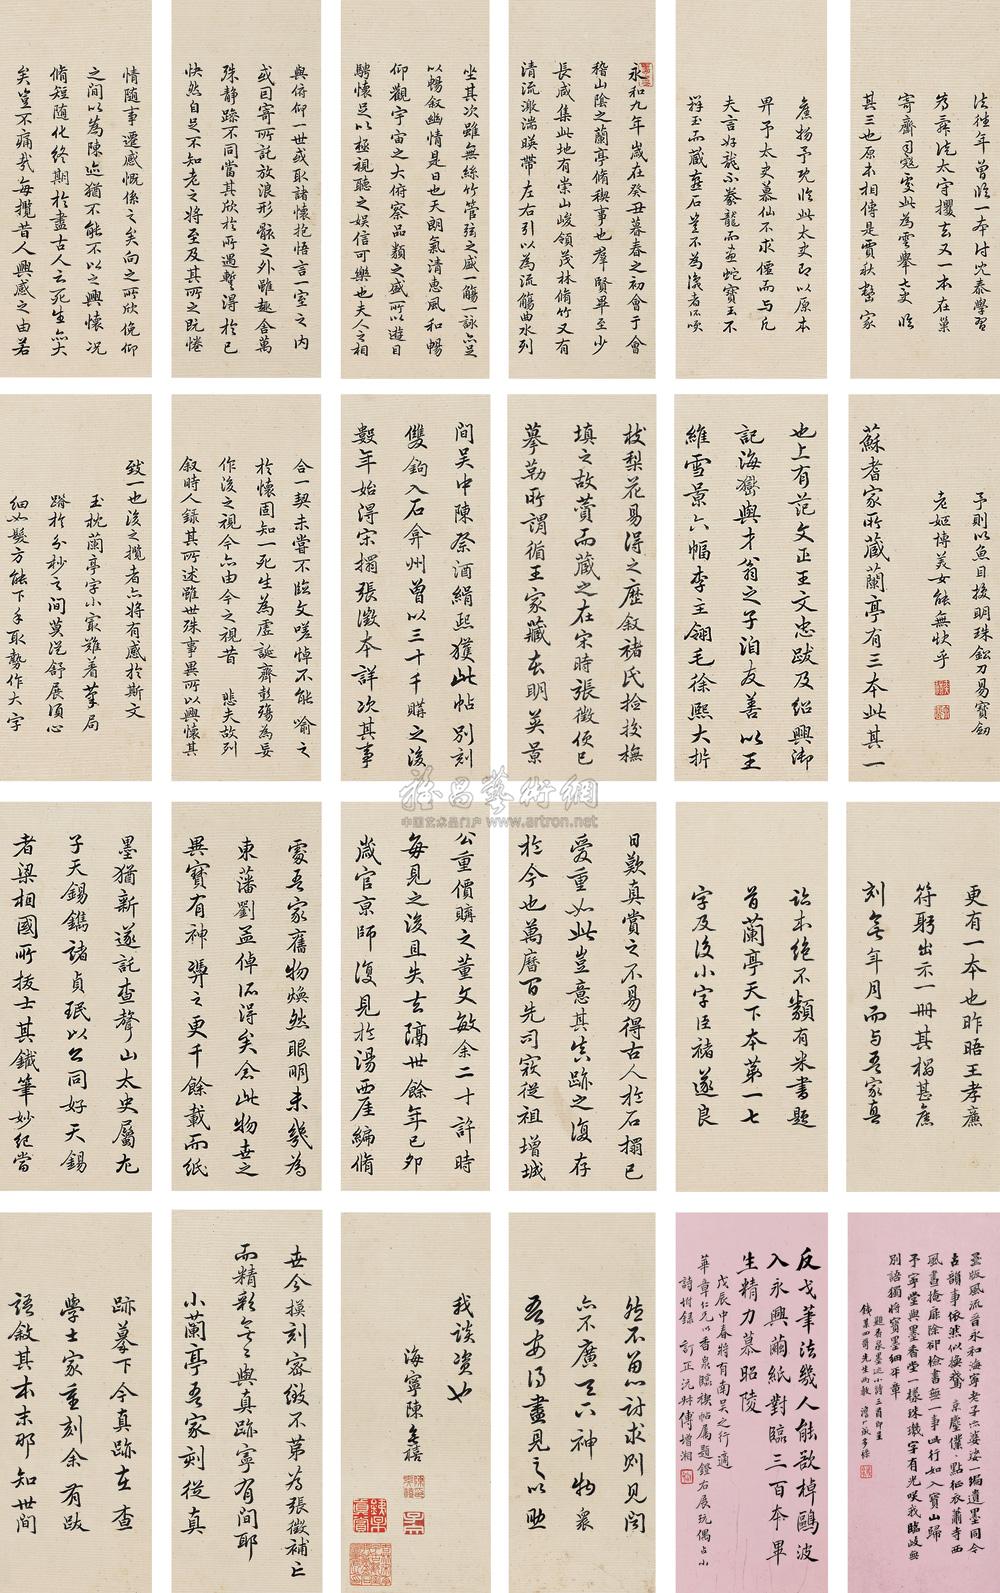 法往年曾臨一本付沈泰學習
太守攫去又一本在巢
寄齋司寇處此為雲舉七史臨
其三也原本相傳是賈秋壑家
舊物予既臨此太史即以原本
畀予太史慕仙不求僊而與凡
夫言好龍不豢龍而畫蛇寶玉不
玉而藏燕石
永和九年歲在癸丑暮春之初會于會
稽山陰之蘭亭脩稧事也羣賢畢至少
長咸集此地有崇山峻領茂林脩竹又有
清流激湍暎帶左右引以為流觴曲水列
坐其次雖無絲竹管弦之盛一觴一詠亦足
以暢敘幽情是日也天朗氣清惠風和暢
仰觀宇宙之大俯察品類之盛所以遊目
騁懷足以極視聽之娛信可樂也夫人之相
與俯仰一世或取諸懷抱悟言一室之內
或因寄所託放浪形骸之外雖趣舍萬
殊靜躁不同當其欣於所遇蹔得於己
快然自足不知老之將至及其所之既惓
情隨事遷感慨係之矣向之所欣俛仰
之間以為陳迹猶不能不以之興懷況
脩短隨化終期於盡古人云死生亦大
矣豈不痛哉每攬昔人興感之由若
予則以魚目換明珠鉛刀易寶劍
老姬博美女能無快乎
蘇耆家所藏蘭亭有三本此其一
也上有范文正王文忠跋及紹興御
記海嶽與才翁之子洎友善以王
維雪景六幅李主翎毛徐熙大折
枝梨花易得之歷敘褚氏捡挍橅
填之故賷而藏之在宋時張徵便已
摹勒所謂循王家藏本明英景
間吳中陳祭酒緝熙獲此帖別刻
雙鉤入石弇州曾以三十千購之後
數年始得宋搨張澂本詳次其事
合一契未嘗不臨文嗟悼不能喻之
於懷固知一死生為虛誕齊彭殤為妄
作後之視今亦由今之視昔 悲夫故列
敘時人錄其所述雖世殊事異所以興懷其
致一也後之攬者亦將有感於斯文
玉枕蘭亭字小最難着筆局
蹐於分秒之間莫从舒展須心
細如髮方能下手取勢作大字
更有一本也昨晤王孝廉
符躬出示一冊其搨甚舊
刻無年月而与吾家真
詒本絕不類有米書題
首蘭亭天下本第一七
字及後小字臣褚遂良
日歎真賞之不易得古人於石搨已
愛重如此豈意其真跡之復存
於今也萬曆間先司寇從祖增城
公重價購之董文敏余二十許時
每見之後且失去隔世餘年己卯
歲官京師復見於湯西厓編脩
處吾家舊物煥然眼明未幾為
東藩劉益倬所得矣念此物世之
異寶有神彇之更千餘載而紙
墨猶新遂託查聲山太史屬尤
子天錫鐫諸貞珉以公同好天錫
者梁相國所拔士其鐵筆妙紀當
墨版風流晉永和海寧老子亦婆娑一搨遺墨同今
古韻事依然似換鵞 京塵僕僕點征衣蕭寺西
風晝掩扉除卻檢書無一事此行如入寶山歸
予寧堂與墨香堂一樣珠璣字有光咲我臨岐無
別語獨將寶墨細平章
題香泉墨迹小詩三首即呈
反戈筆法幾人能欲棹鷗波
入永興繭紙對臨三百本畢
生精力慕昭陵
戊辰中春將有南吳之行適
華章仁兄以香泉臨禊帖屬題鐙右展玩偶占小
詩坿錄 訂正沅叔傅增湘
然不畱心討求則見聞
亦不廣天下神物衆
吾安得盡見之以助
我談资也
海寧陳奕禧
世今摸刻容緻不第為張徵補亡
而精彩奕奕與真跡寧有間耶
小蘭亭吾家刻從真
跡摹下今真跡在查
學士家重刻余有跋
語敘其本末那知世間
雅昌藝術網
中国艺术品门户 www.artron.net